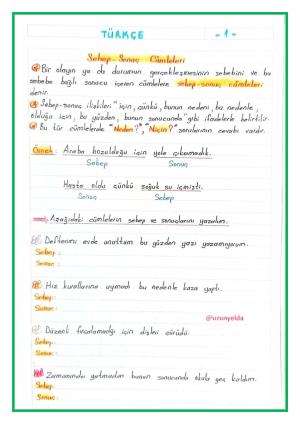 TÜRKÇE
- 1 -
Sebep - Sonuç Cümleleri
Bir olayın ya da durumun gerçekleşmesinin sebebini ve bu
sebebe bağlı sonucu içeren cümlelere sebep-sonuç cümleleri
denir.
Sebep-sonuç ilişkileri "için, çünkü, bunun nedeni, bu nedenle,
olduğu için, bu yüzden, bunun sonucunda" gibi ifadelerle belirtilir.
Bu tür cümlelerde "Neden?", "Niçin?" sorularının cevabı vardır.
Örnek: Araba bozulduğu için yola çıkamadık.
Sebep Sonuç
Hasta oldu çünkü soğuk su içmişti.
Sonuç Sebep
Aşağıdaki cümlelerin sebep ve sonuçlarını yazalım.
Defterimi evde unuttum bu yüzden yazı yazamıyorum.
Sebep:
Sonuç:
Hız kurallarına uymadı bu nedenle kaza yaptı.
Sebep:
Sonuç:
@uzunyelda
Düzenli fırçalamadığı için dişleri çürüdü.
Sebep:
Sonuç:
Zamanında yatmadın bunun sonucunda okula geç kaldın.
Sebep:
Sonuç: